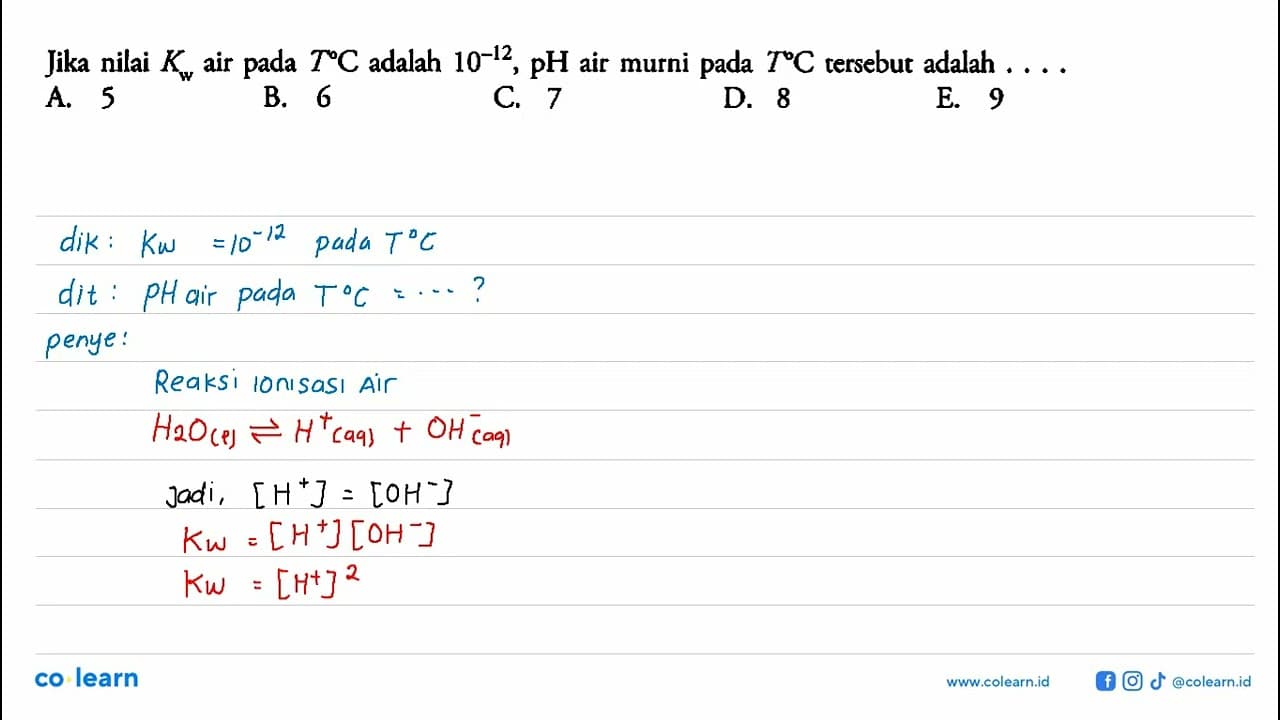 Jika nilai Kw air pada T°C adalah 10⁻¹², pH air murni pada T°C tersebut adalah . . . .
A. 5 B. 6 C. 7 D. 8 E. 9
dik: Kw = 10⁻¹² pada T°C
dit: pH air pada T°C = ... ?
penye:
Reaksi ionisasi Air
H2O(l) ⇌ H⁺(aq) + OH⁻(aq)
Jadi, [H⁺] = [OH⁻]
Kw = [H⁺][OH⁻]
Kw = [H⁺]²
co learn
www.colearn.id
@colearn.id